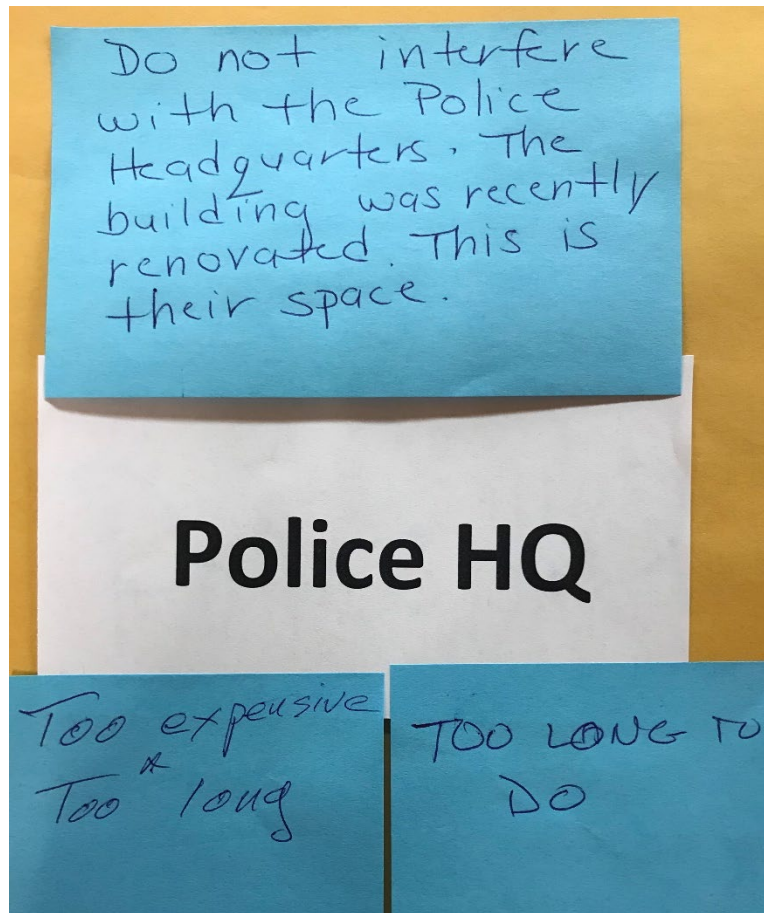 Do not interfere
with the Police
Headquarters. The
building was recently
renovated. This is
their space.
Police HQ
Too expensive
&
Too long
TOO LONG TO
DO